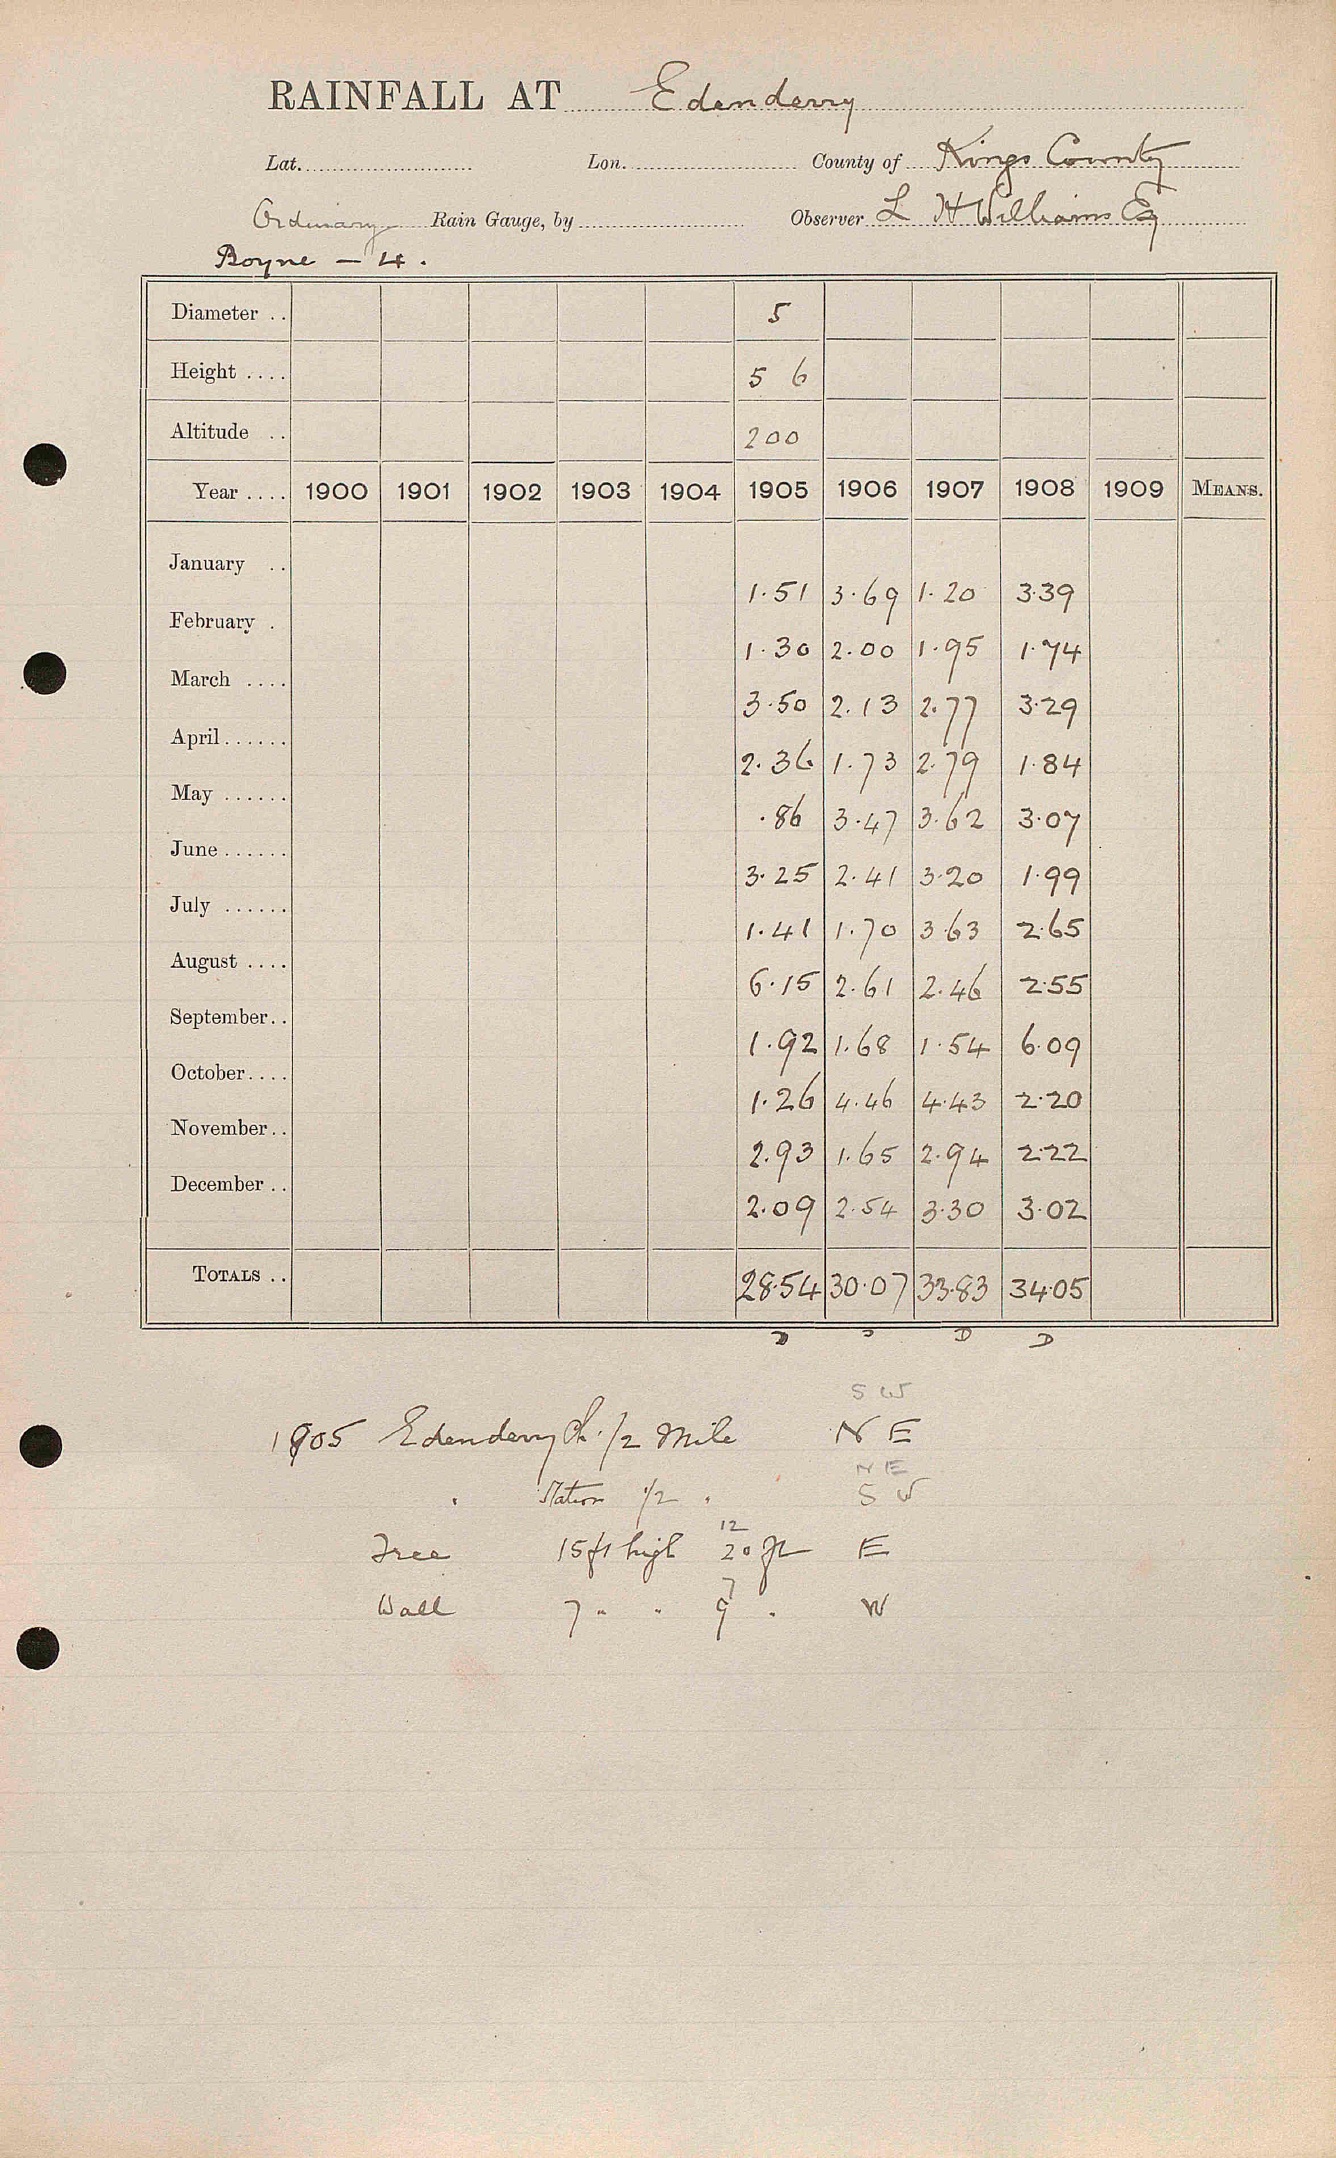 RAINFALL AT Edenderry
Lat. Lon. County of Kings County
Ordinary Rain Gauge, by Observer L H Williams Esq
Boyne - 4.
Diameter .. 5
Height .... 5 6
Altitude .. 200
Year .... 1900 1901 1902 1903 1904 1905 1906 1907 1908 1909 MEANS.
January ..
1.51 3.69 1.20 3.39
February .
1.30 2.00 1.95 1.74
March ....
3.50 2.13 2.77 3.29
April......
2.36 1.73 2.79 1.84
May ......
.86 3.47 3.62 3.07
June......
3.25 2.41 3.20 1.99
July ......
1.41 1.70 3.63 2.65
August ....
6.15 2.61 2.46 2.55
September..
1.92 1.68 1.54 6.09
October....
1.26 4.46 4.43 2.20
November..
2.93 1.65 2.94 2.22
December ..
2.09 2.54 3.30 3.02
TOTALS .. 28.54 30.07 33.83 34.05
D D D D
S W
1905 Edenderry Ch. 1/2 Mile N E
N E
" Station 1/2 " S W
12
Tree 15ft high 20 ft E
7
Wall 7 " " 9 " W